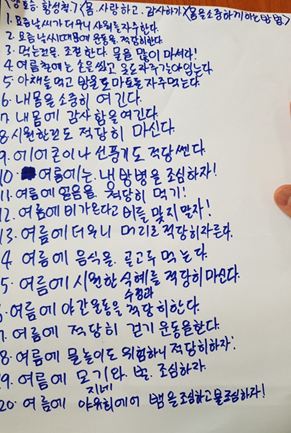 몸 사랑하고. 감사하기
1. 요즘 날씨가 더우니 샤워를 자주한다.
2. 요즘 날씨때문에 운동을 적당히한다
3. 먹는것은. 조절한다. 물을 많이 마셔라!
4. 여름철에는 손을씻고 옷도 자주 갈아입는다.
5. 야채를 먹고 마늘도 자주먹는다.
6. 내몸을 소중히 여긴다.
7. 내몸에 감사함을여긴다.
8. 시원한것도 적당히 마신다.
9. 에어콘이나 선풍기도 적당 쎈다.
10. 여름에는. 냉방병을 조심하자!
11. 여름에 얼음을 적당히 먹기!
12. 여름에 비가온다고 비를 맞지말자!
13. 여름에 더우니 머리로 적당히자른다.
4. 여름에 음식을. 골고루 먹는다.
5. 여름에 시원한 식혜를 적당히마신다.
수정과
6. 여름에 야간운동을 적당히한다.
7. 여름에 적당히 걷기 운동을한다.
8. 여름에 물놀이도 위험하니 적당히하자!
9. 여름에 모기와 벌. 조심하라.
지네
20. 여름에 야유회에서 뱀을조심하고물조심하자!